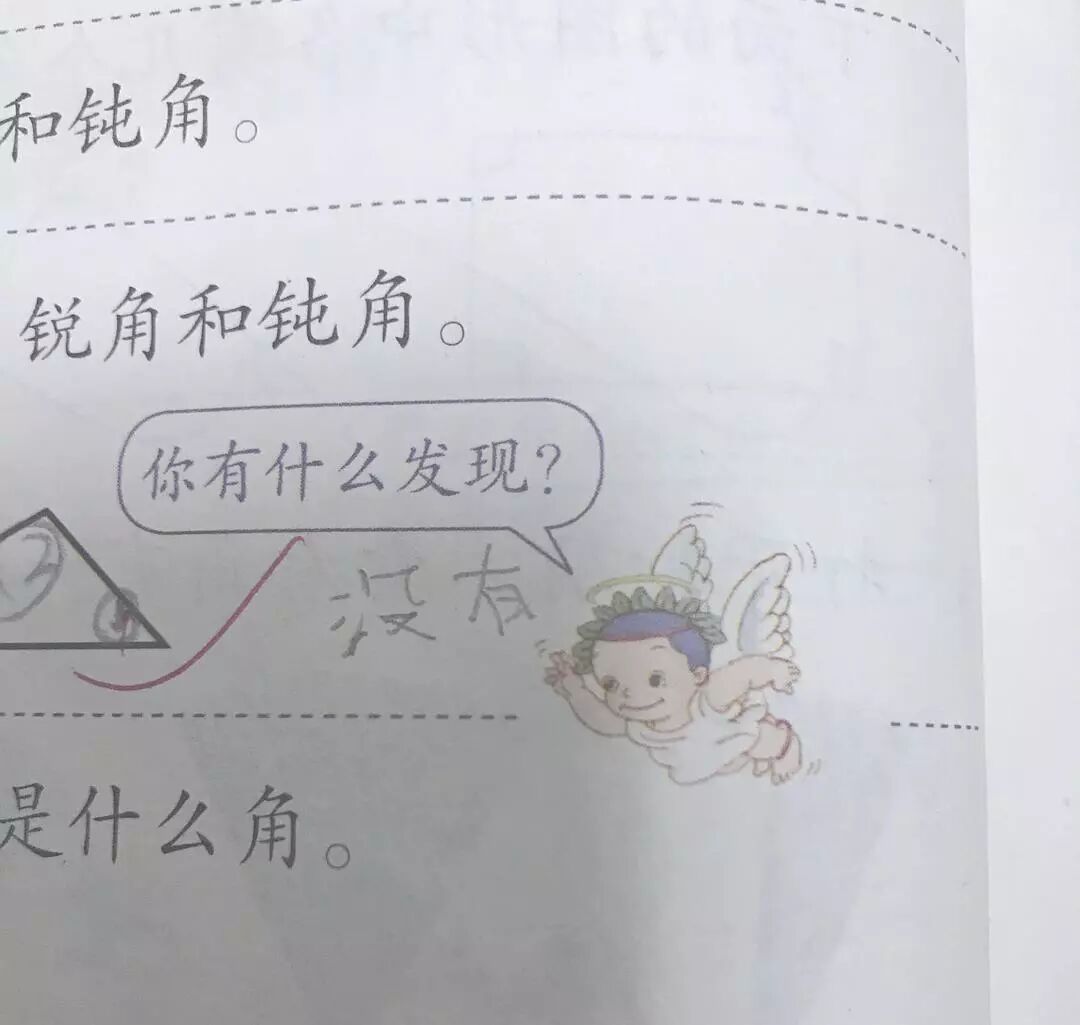 和钝角。
锐角和钝角。
你有什么发现?
没有
是什么角。